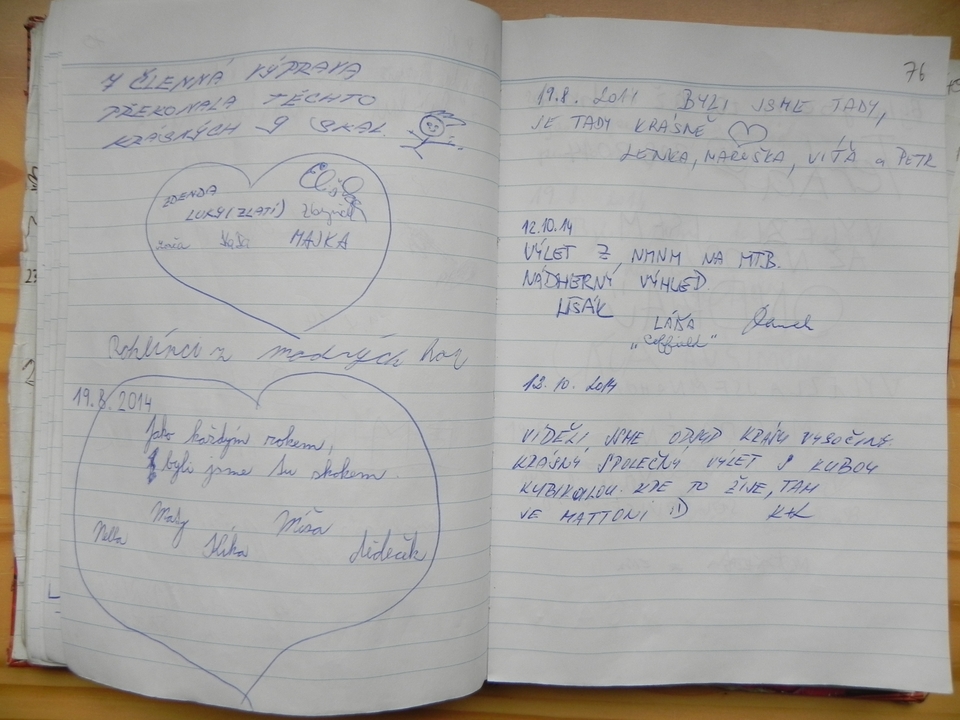 7 ČLENNÁ VÝPRAVA
PŘEKONALA TĚCHTO
KRÁSNÝCH 9 SKAL.
ZDENDA
LUKY (ZLATÍ) Zbyněk
MAJKA
z modrých hor
19.8.2014
Jako každým rokem,
byli jsme tu skokem.
Míša
Nella
dědeček
76
19.8. 2011 BYLI JSME TADY,
JE TADY KRÁSNĚ
LENKA, MARUŠKA, VÍŤA a PETR
12.10.14
VÝLET Z NMNM NA MTB.
NÁDHERNÝ VÝHLED.
LIŠÁK
12. 10. 2014
VIDĚLI JSME ODSUD KRÁSU VYSOČINY.
KRÁSNÝ SPOLEČNÝ VÝLET S KUBOU
KUBIKULOU. KDE TO ŽIJE, TAM
VE MATTONI :D K+L